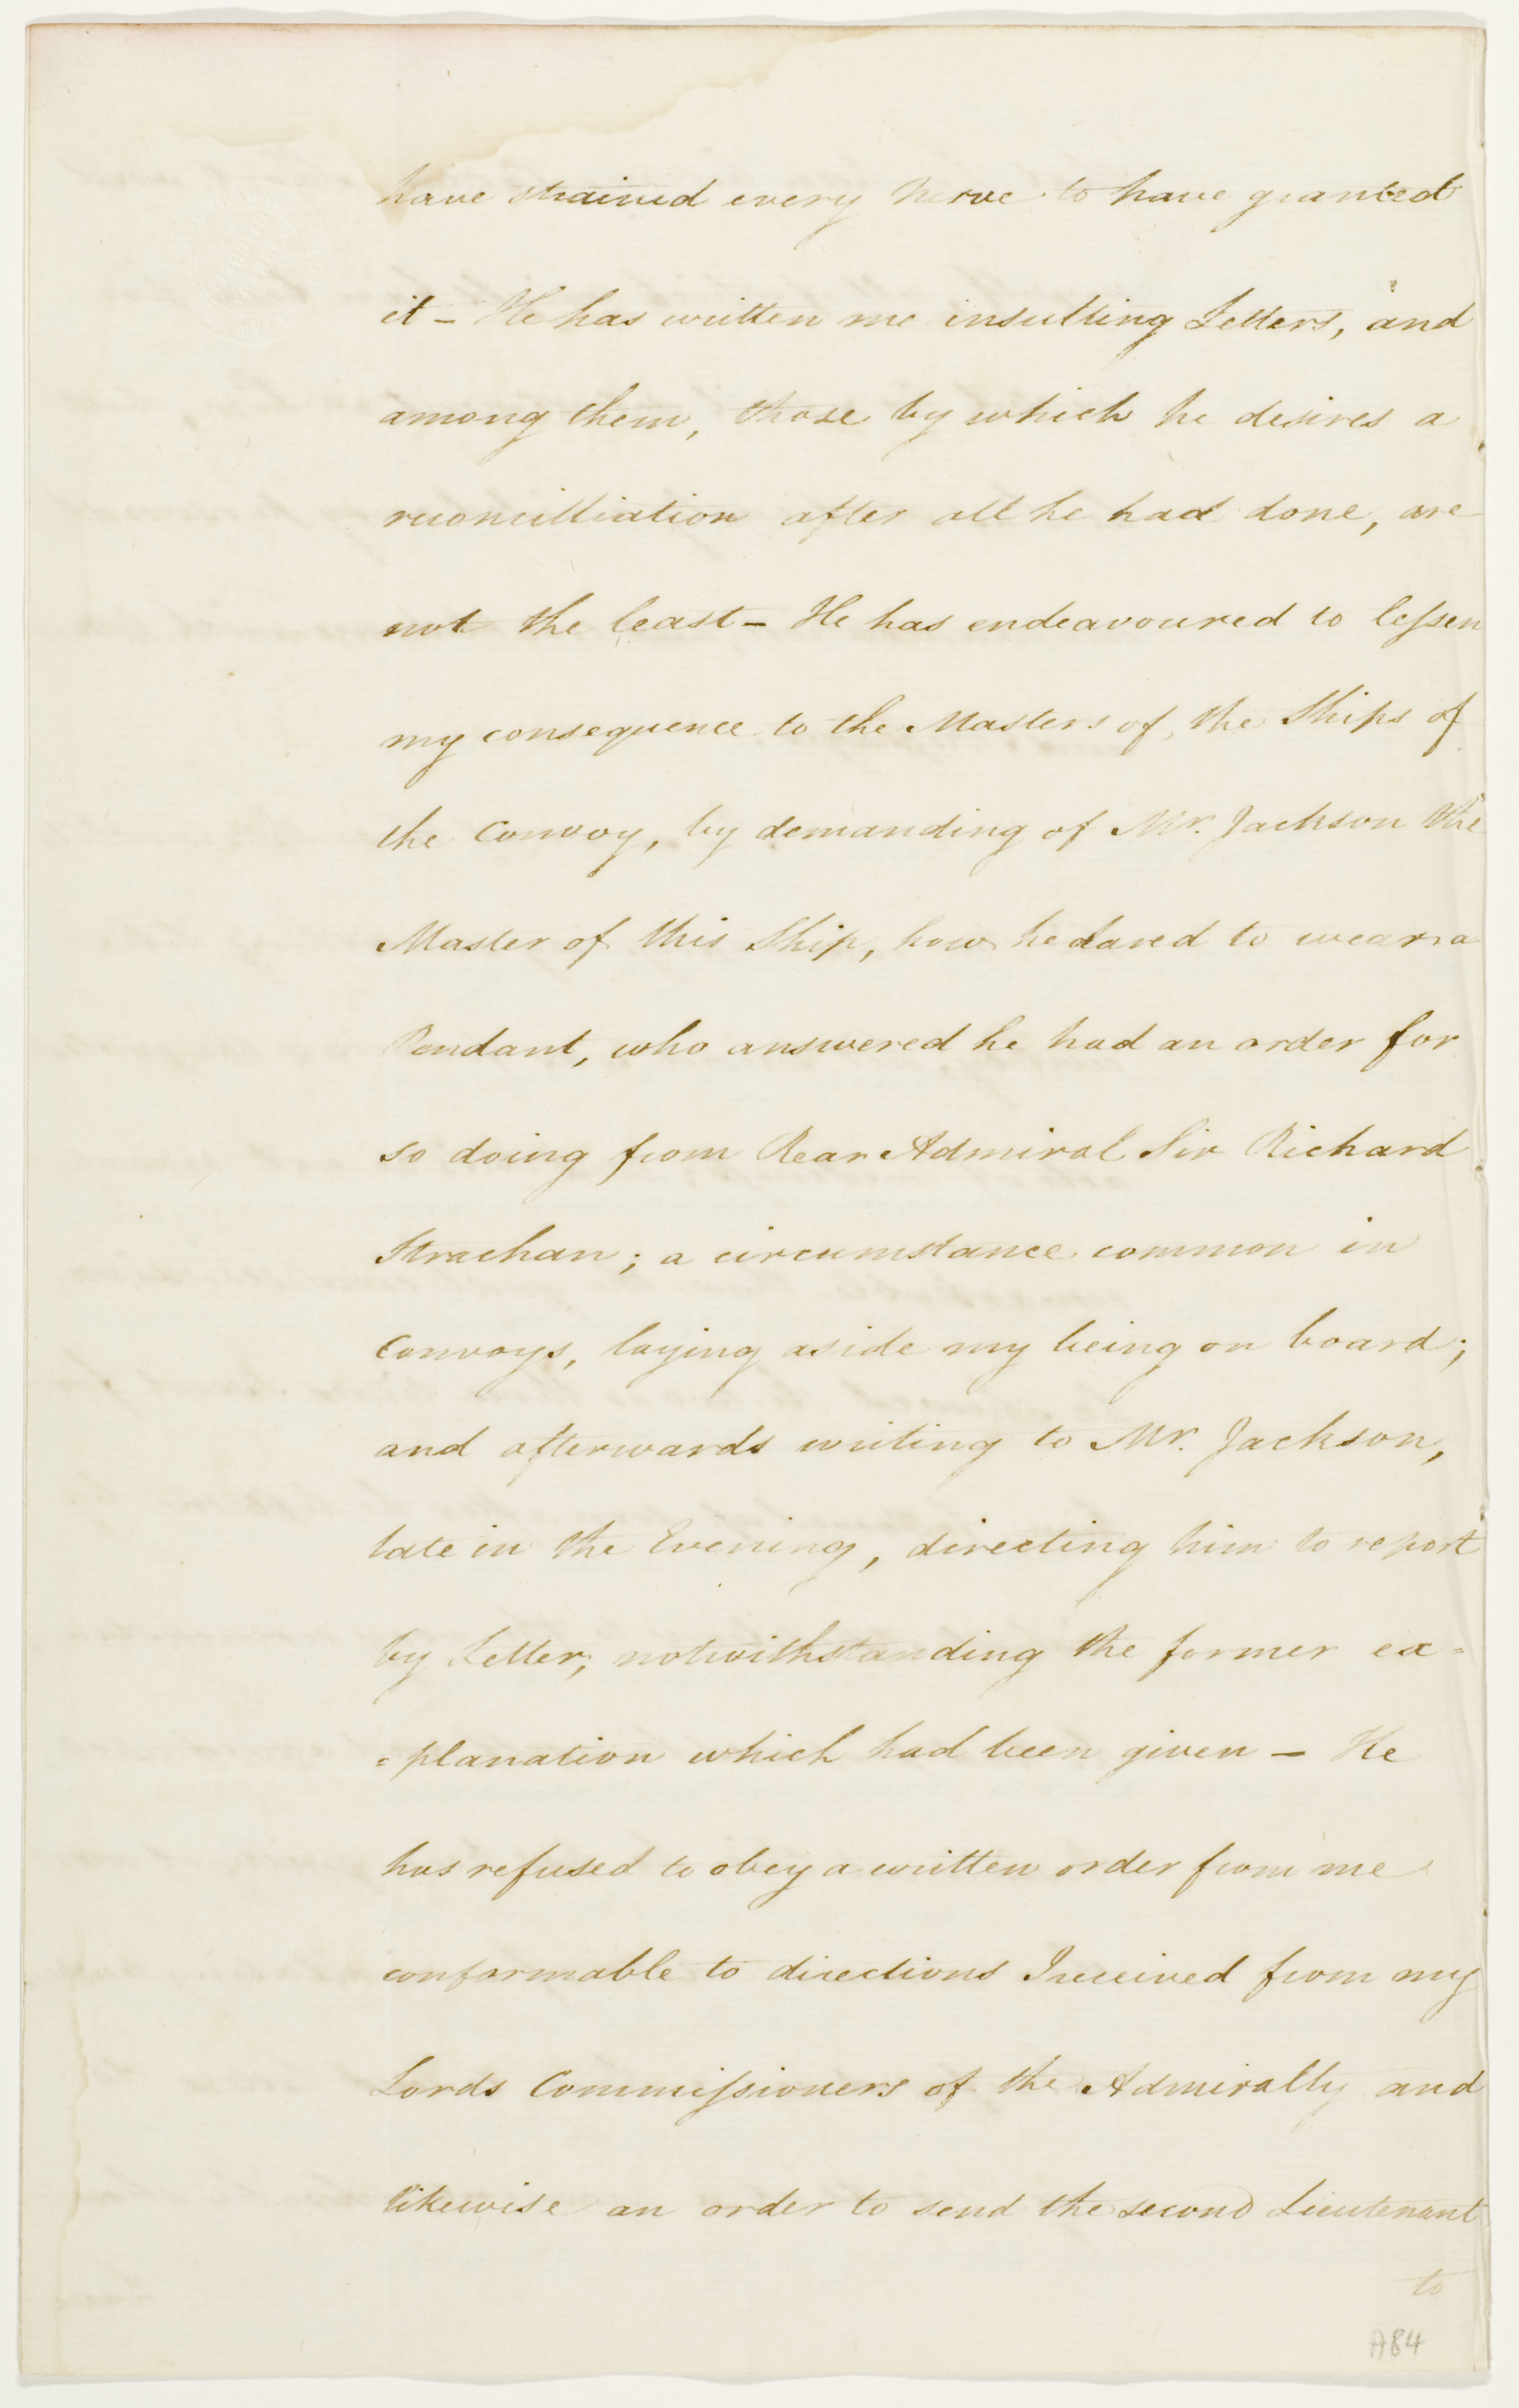 have strained every nerve to have granted
it – He has written me insulting Letters, and
among them, those by which he desires a
reconcilliation after all he had done, are
not the least – He has endeavoured to leſsen
my consequence to the Masters of the Ships of
the Convoy, by demanding of Mr. Jackson the
Master of this Ship, how he dared to wear a
Pendant, who answered he had an order for
so doing from Rear Admiral Sir Richard
Strachan; a circumstance common in
Convoys, laying aside my being on board;
and afterwards writing to Mr. Jackson,
late in the Evening, directing him to report
by Letter, notwithstanding the former ex=
=planation which had been given – He
has refused to obey a written order from me
conformable to directions I received from my
Lords Commiſsioners of the Admiralty and
likewise an order to send the second Lieutenant
to
A84